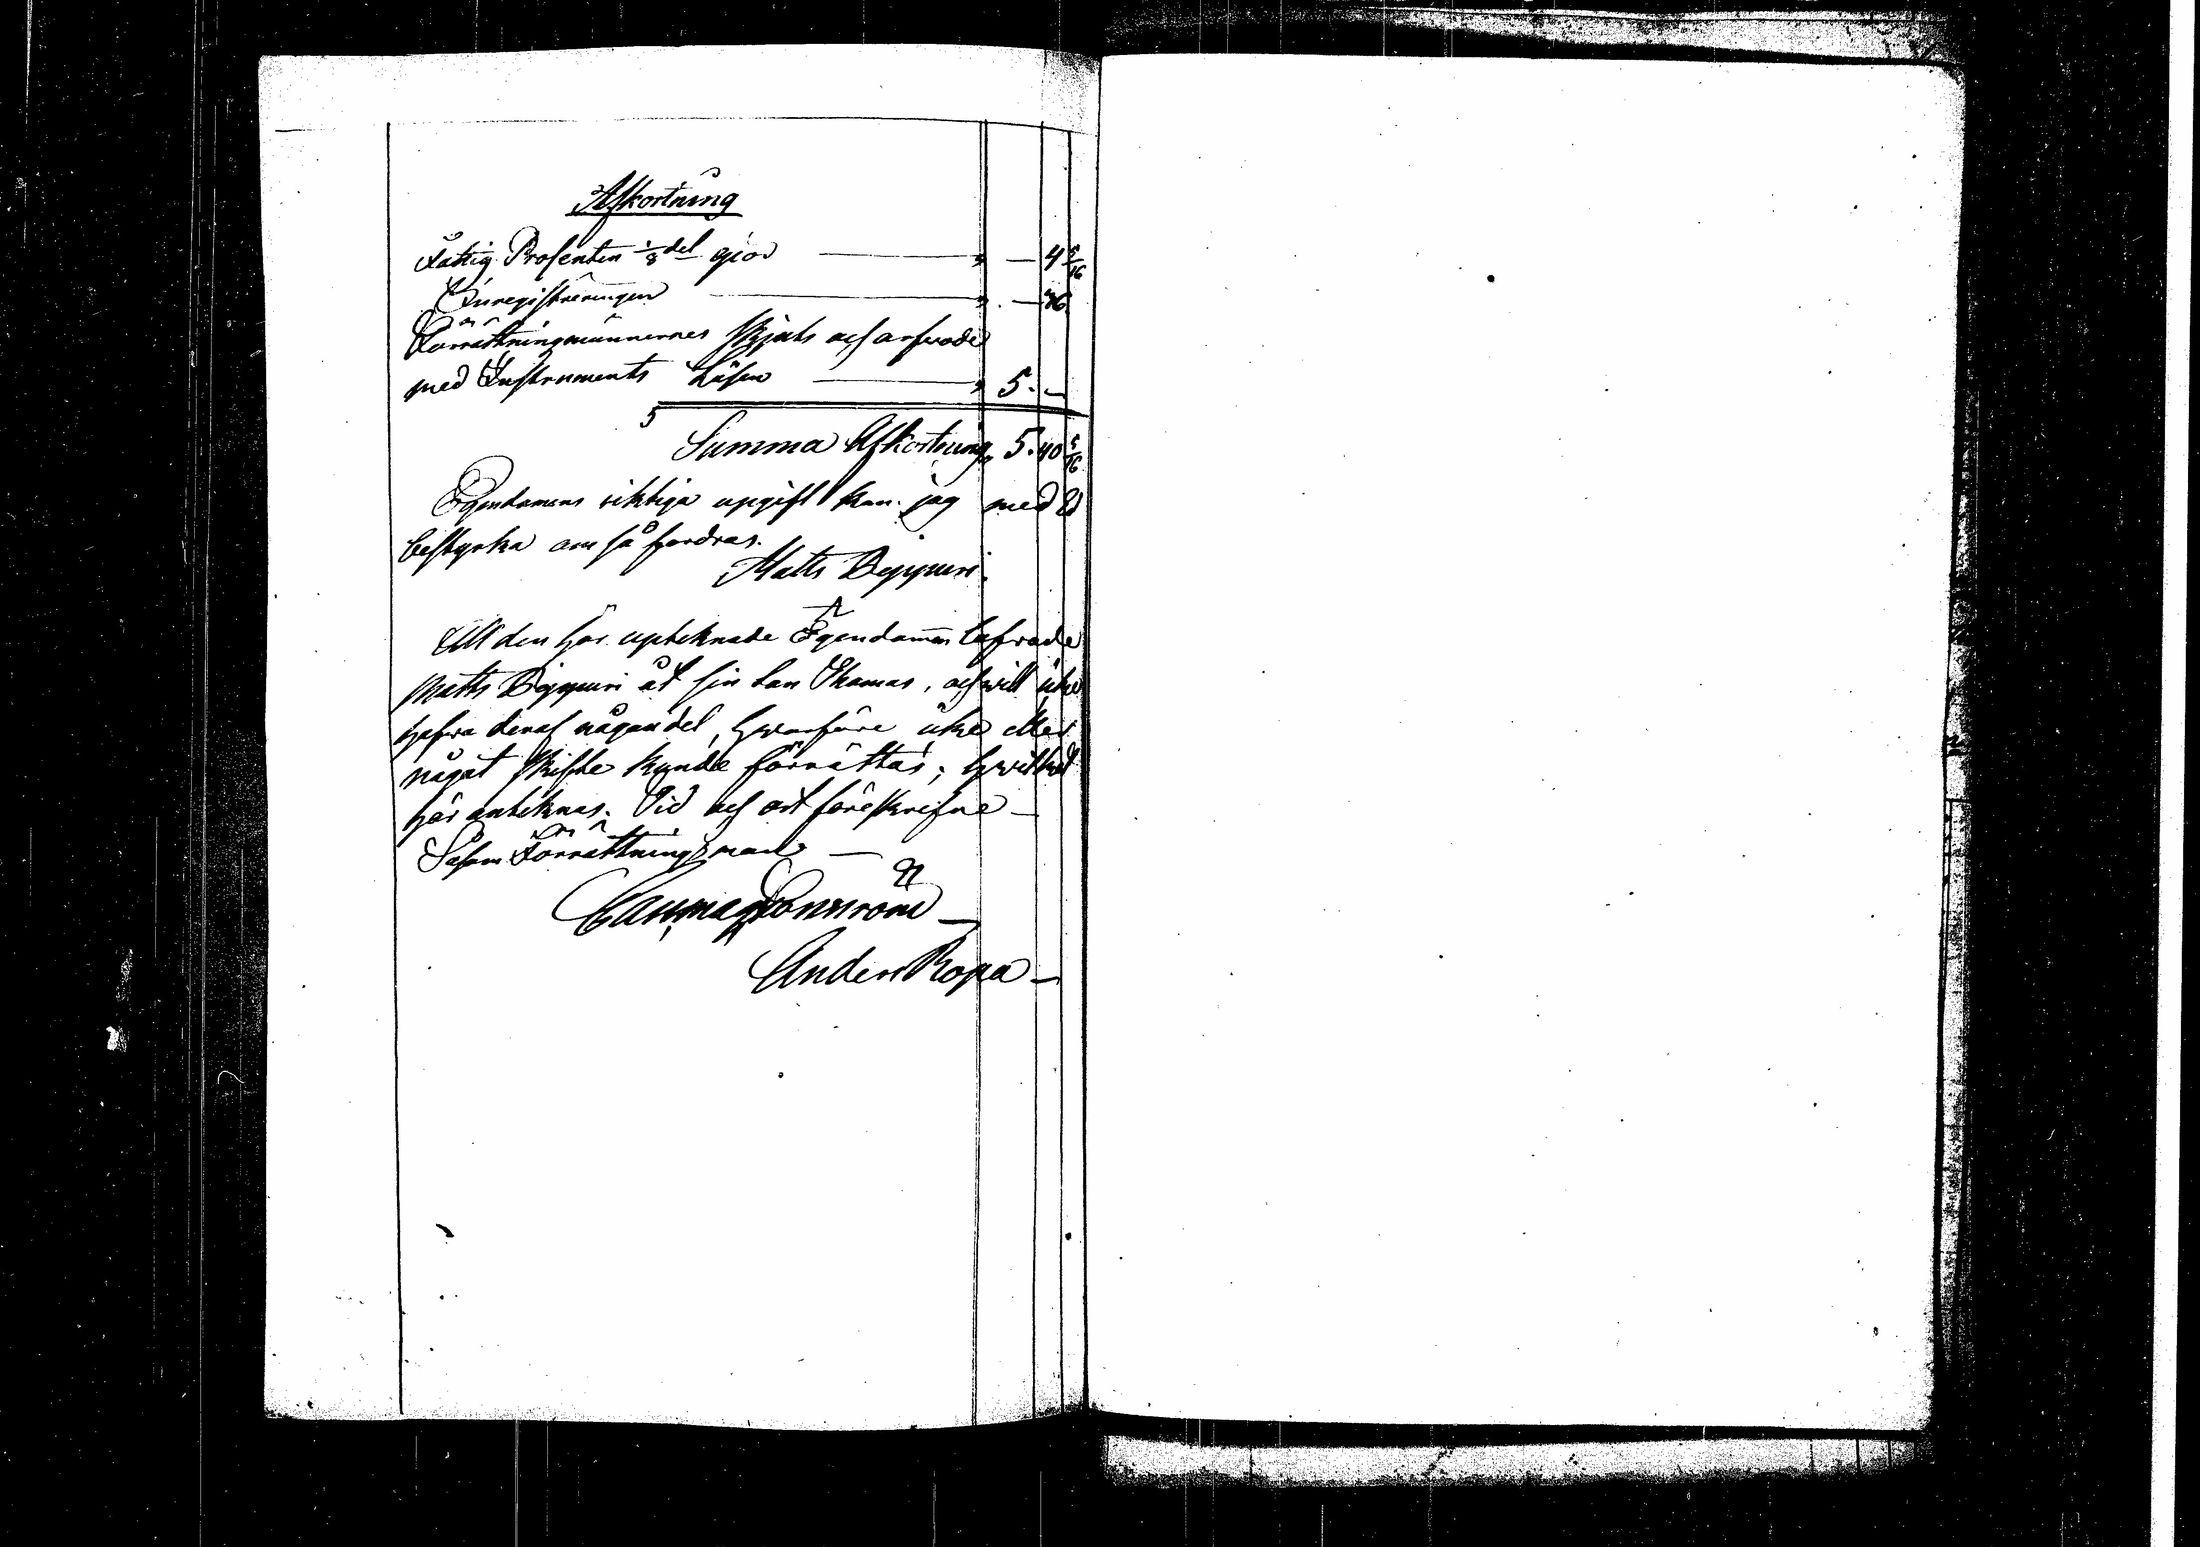 Afkortning
Fattig Prosenten 1/8 del giör — „ — 4 5/16
Inregistreringen — „ — 36
Förrättningsmännernes Skjuts och arfwode
med Instruments Lösen — „ 5. —
5
Summa Afkortning „ 5. 40 5/16
Egendomens riktiga upgift kan jag med Ed
bestyrka om så fordras.
Matts
All den här upteknade Egendomen lefwrade
Matts åt sin Son Thomas, och will icke
hafwa deraf någon del, hwarföre icke eller
något Skifte kunde förrättas; hwilket
här anteknas. Tid och ort föreskrifne —
Såsom Förrättningsman —
Anders Ropa —